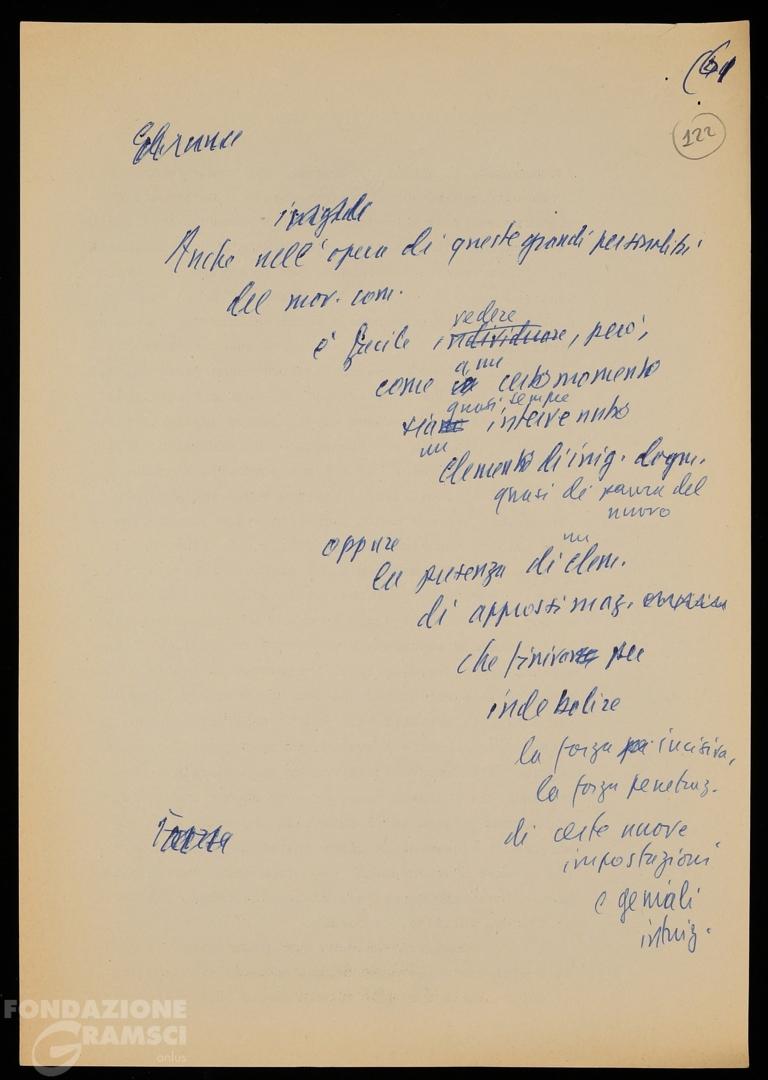 (6
122
Anche nell'opera di queste grandi personalità
del mov. com.
vedere
è facile individuare, però,
a un
come certo momento
quasi sempre
sia intervenuto
un
elemento di irrig. dogm.
quasi di paura del
nuovo
oppure
un
la presenza di elem.
di approssimaz.
che finiva per
indebolire
la forza incisiva,
la forza penetraz.
di certe nuove
impostazioni
e geniali
intuiz.
FONDAZIONE
GRAMSCI
onlus